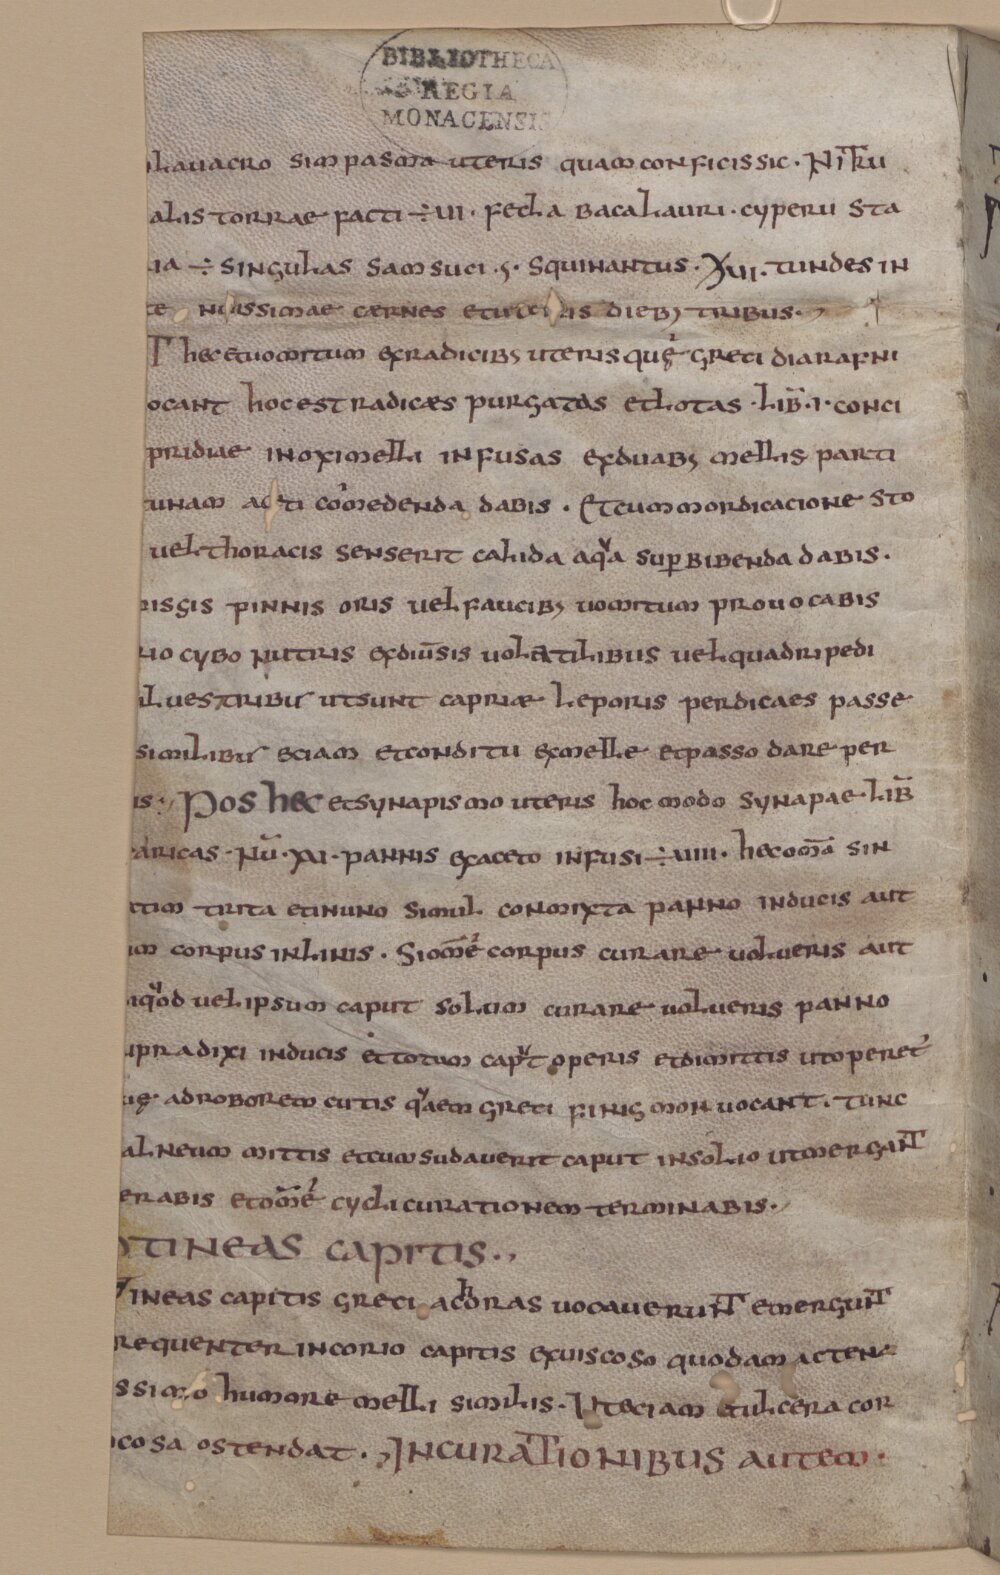 BIBLIOTHECA
REGIA
MONACENSIS
lavacro simpasma uteris quam conficis sic · Nitru
alis torrae facti ÷ VI · fecla bacalauri · cyperu sta
ia ÷ singulas samsuci · s · squinantus · XVI · tundes in
te nuissimae cernes et uteris dieb; tribus ·
T hec et vomitum ex radicib; uteris quę greci diarafni
ocant hoc est radices purgatas et lotas · lib̄ · I · conci
pridiae in oximelli infusas ex duab; mellis parti
unam aceti com̄edenda dabis · Et cum mordicacione sto
vel thoracis senserit calida aqua sup bibenda dabis ·
risgis pinnis oris vel faucib; vomitum provocabis
rio cybo nutris ex diūsis volatilibus vel quadripedi
lvestribus ut sunt capriae leporis perdicaes passe
similibus eciam et conditu ex melle et passo dare per
is · Pos hec et synapismo uteris hoc modo synapae · lib̄
aricas · Nū · XXI · pannis ex aceto infusi ÷ VIIII · hec om̄a sin
atim trita et in uno simul conmixta panno inducis aut
um corpus inlinis · Si om̄e corpus curare volueris aut
iquod vel ipsum caput solum curare volueris panno
upra dixi inducis et totum caput operis et dimittis ut operet
uę ad roborem cutis quaem greci finigmon vocant · tunc
alneum mittis et cum sudaverit caput in solio ut mergant
erabis et om̄e cycli curationem terminabis ·
tineas capitis ·
Tineas capitis greci achoras vocaverunt emergunt
requenter in corio capitis ex viscoso quodam ac tena
ssimo humore melli similis · Ut eciam et ulcera cor
cosa ostendat · In curationibus autem ·